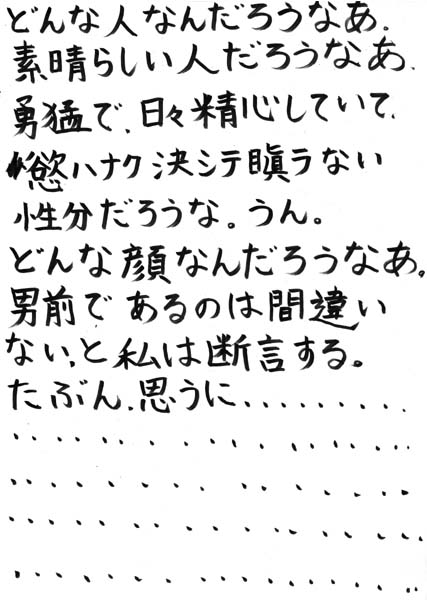 どんな人なんだろうなあ.
素晴らしい人だろうなあ.
勇猛で、日々精心していて、
慾ハナク決シテ瞋ラない
性分だろうな。うん。
どんな顔なんだろうなあ。
男前であるのは間違い
ない、と私は断言する。
たぶん、思うに.........
....................
..................
.....................
......................